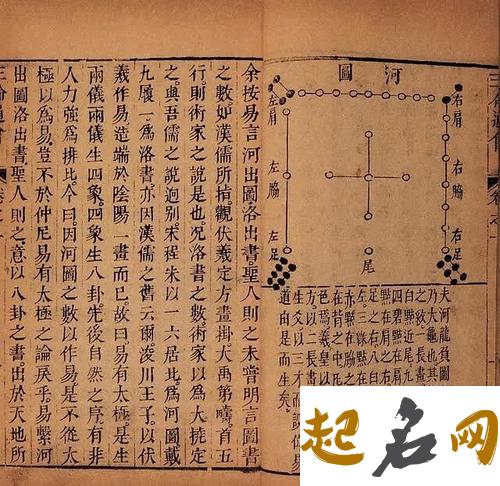 河圖
右肩
左肩
右脇
左脇
右足
左足
尾
夫河龍負圖
乃大龜也其
白點近尾九
四碧點在肩
點在肩之右
足之右八白
道由是而生矣
余按易言河出圖洛出書聖人則之未嘗明言圖書
之數如漢儒所指觀伏羲定方畫卦大禹第疇首五
行則術家之說是也況洛書之數術家以為大撓定
之與吾儒之說迥別宋程朱以一六居比為河圖戴
九履一為洛書亦因漢儒之舊云爾浚川王子以伏
羲作易造端於陰陽一畫而已故曰易有太極是生
兩儀兩儀生四象四象生八卦先後自然之序有非
人力強為排比今曰因河圖之數以作易是不從太
極以為易豈不於仲尼易有太極之論戾乎易繫河
出圖洛出書聖人則之意以八卦之書出於天地所
起名网